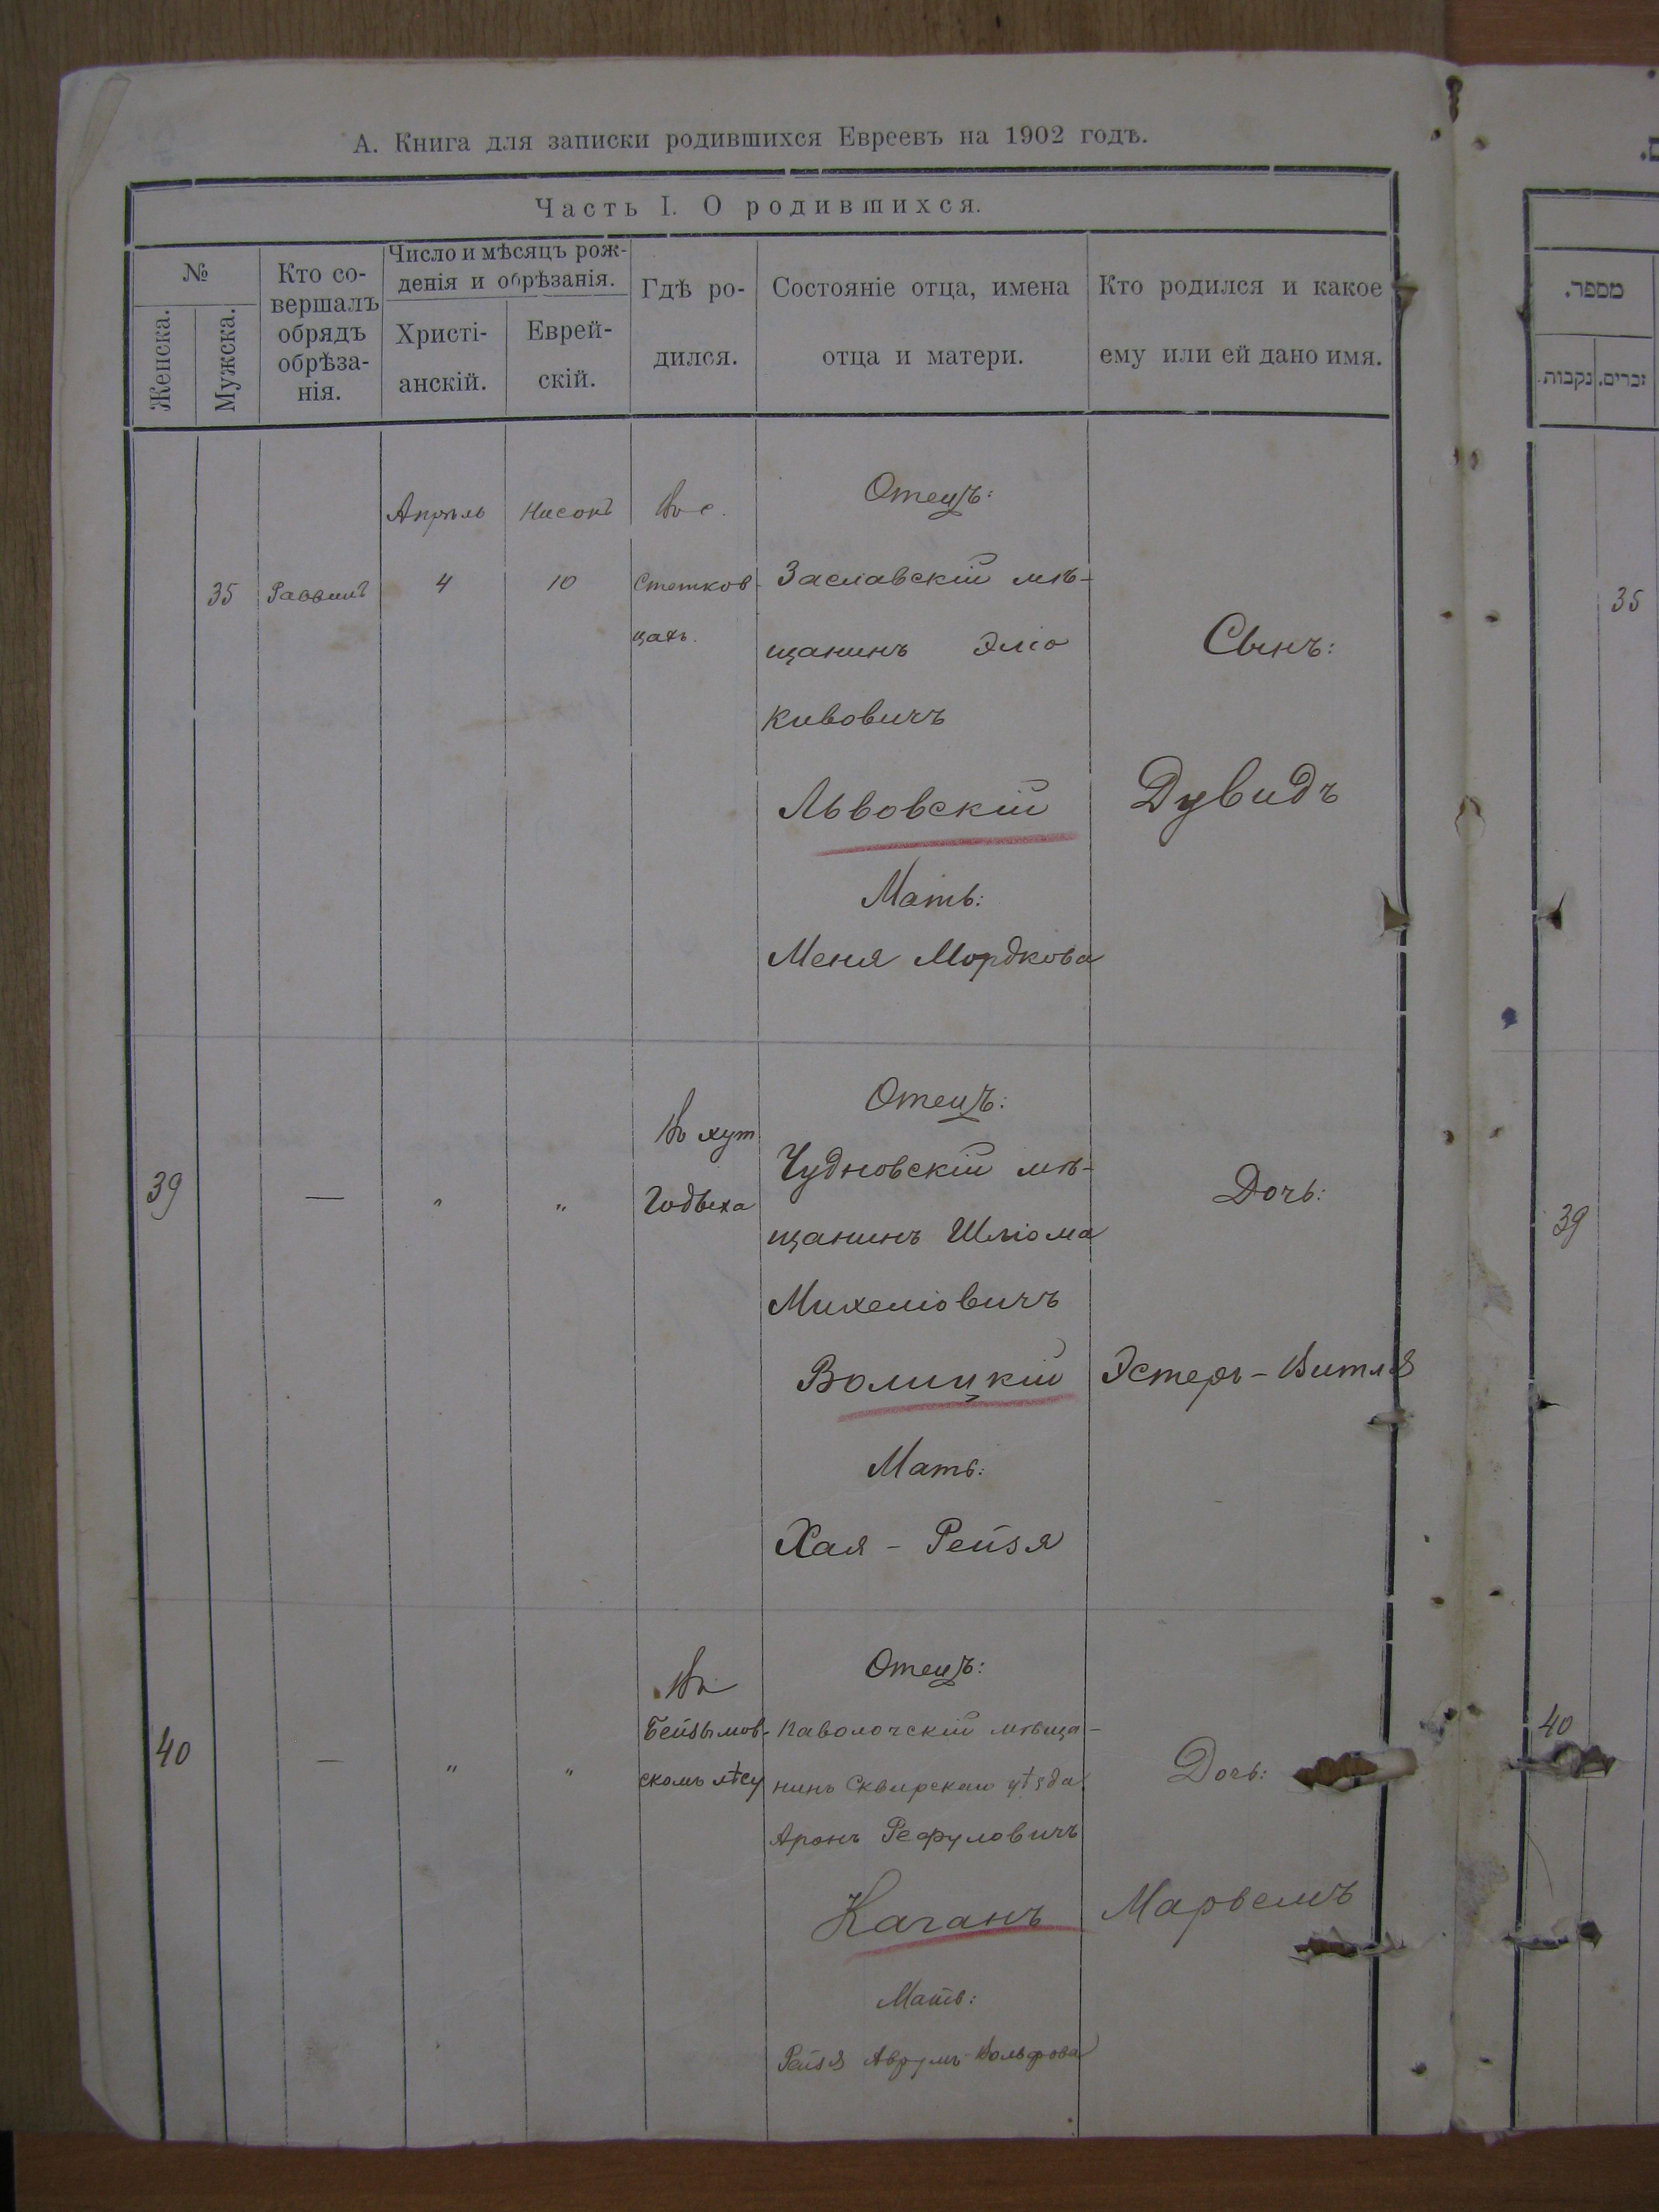 А. Книга для записки родившихся Евреевъ на 1902 годъ.
Часть I. О родившихся.
№
Женска.
Мужска.
Кто со-
вершалъ
обрядъ
обрѣза-
нія.
Число и мѣсяцъ рож-
денія и обрѣзанія.
Христі-
анскій.
Еврей-
скій.
Гдѣ ро-
дился.
Состояніе отца, имена
отца и матери.
Кто родился и какое
ему или ей дано имя.
35
Раввинъ
Апрѣль
4
Нисонъ
10
Въ с.
Стетков-
цахъ.
Отецъ:
Заславскій мѣ-
щанинъ Эліо
Кивовичъ
Львовскій
Мать:
Меня Мордкова
Сынъ:
Дувидъ
39
—
"
"
Въ хут
Годыха
Отецъ:
Чудновскій мѣ-
щанинъ Шліома
Михеліовичъ
Волицкій
Мать:
Хая - Рейзя
Дочь:
Эстеръ - Витля
40
—
"
"
Въ
Бейзымов-
скомъ лѣсу
Отецъ:
Паволочскій мѣща-
нинъ Сквирскаго уѣзда
Аронъ Рефуловичъ
Каганъ
Мать:
Рейзя Аврумъ-Вольфова
Дочь:
Марьемъ
מספר.
זכרים.
נקבות.
35
39
40